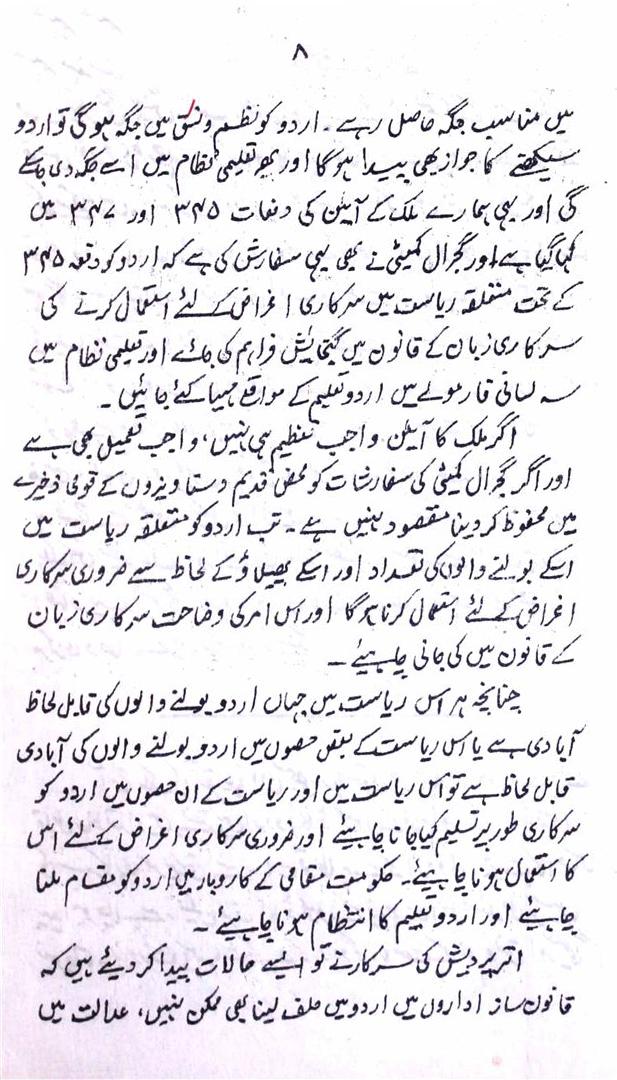 ۸
میں مناسب جگہ حاصل رہے ۔ اردو کو نظم و نسق میں جگہ ہوگی تو اردو
سیکھنے کا جواز بھی پیدا ہوگا اور پھر تعلیمی نظام میں اسے جگہ دی جائے
گی اور یہی ہمارے ملک کے آئین کی دفعات ۳۴۵ اور ۳۴۷ میں
کہا گیا ہے اور گجرال کمیٹی نے بھی یہی سفارش کی ہے کہ اردو کو دفعہ ۳۴۵
کے تحت متعلقہ ریاست میں سرکاری اغراض کے لئے استعمال کرنے کی
سرکاری زبان کے قانون میں گنجایش فراہم کی جائے اور تعلیمی نظام میں
سہ لسانی فارمولے میں اردو تعلیم کے مواقع مہیا کئے جائیں ۔
اگر ملک کا آئین واجب تعظیم ہی نہیں، واجب تعمیل بھی ہے
اور اگر گجرال کمیٹی کی سفارشات کو محض قدیم دستاویزوں کے قومی ذخیرے
میں محفوظ کر دینا مقصود نہیں ہے ۔ تب اردو کو متعلقہ ریاست میں
اسکے بولنے والوں کی تعداد اور اسکے پھیلاؤ کے لحاظ سے ضروری سرکاری
اغراض کے لئے استعمال کرنا ہوگا اور اس امر کی وضاحت سرکاری زبان
کے قانون میں کی جانی چاہیئے ۔
چنانچہ ہر اس ریاست میں جہاں اردو بولنے والوں کی قابل لحاظ
آبادی ہے یا اس ریاست کے بعض حصوں میں اردو بولنے والوں کی آبادی
قابل لحاظ ہے تو اس ریاست میں اور ریاست کے ان حصوں میں اردو کو
سرکاری طور پر تسلیم کیا جانا چاہیئے اور ضروری سرکاری اغراض کے لئے اس
کا استعمال ہونا چاہیئے ۔ حکومت مقامی کے کاروبار میں اردو کو مقام ملنا
چاہیئے اور اردو تعلیم کا انتظام ہونا چاہیئے ۔
اتر پردیش کی سرکار نے تو ایسے حالات پیدا کر دیئے ہیں کہ
قانون ساز اداروں میں اردو میں حلف لینا بھی ممکن نہیں، عدالت میں